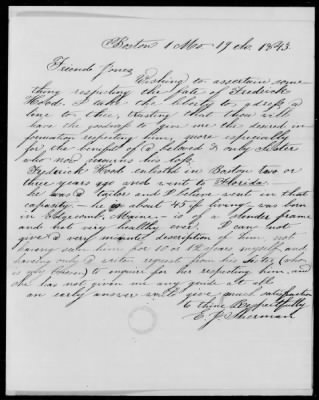 Boston 1 Mo 19th 1843.
Friend Jones
Wishing to ascertain some
thing respecting the fate of Fredrick
Hood. I take the liberty to adress a
line to thee, trusting that thou will
have the goodness to give me the desired in
formation respecting him, more especially
for the benefit of a beloved & only Sister
who now mourns his loss.
Fredrick Hood enlisted in Boston two or
three years ago and went to Florida
he was a tailor and I believe went in that
capacity, - he is about 45 if living, was born
in Edgecomb, Maine, - is of a slender frame
and not very healthy ever. I can not
give a very minute description of him not
having seen him for years myself and
having only a written request from his Sister (who
is to inquire for her respecting him, and
she has not given me any guide at all
an early answer will give much satisfaction
to thine Respectfully
E. J. Sherman